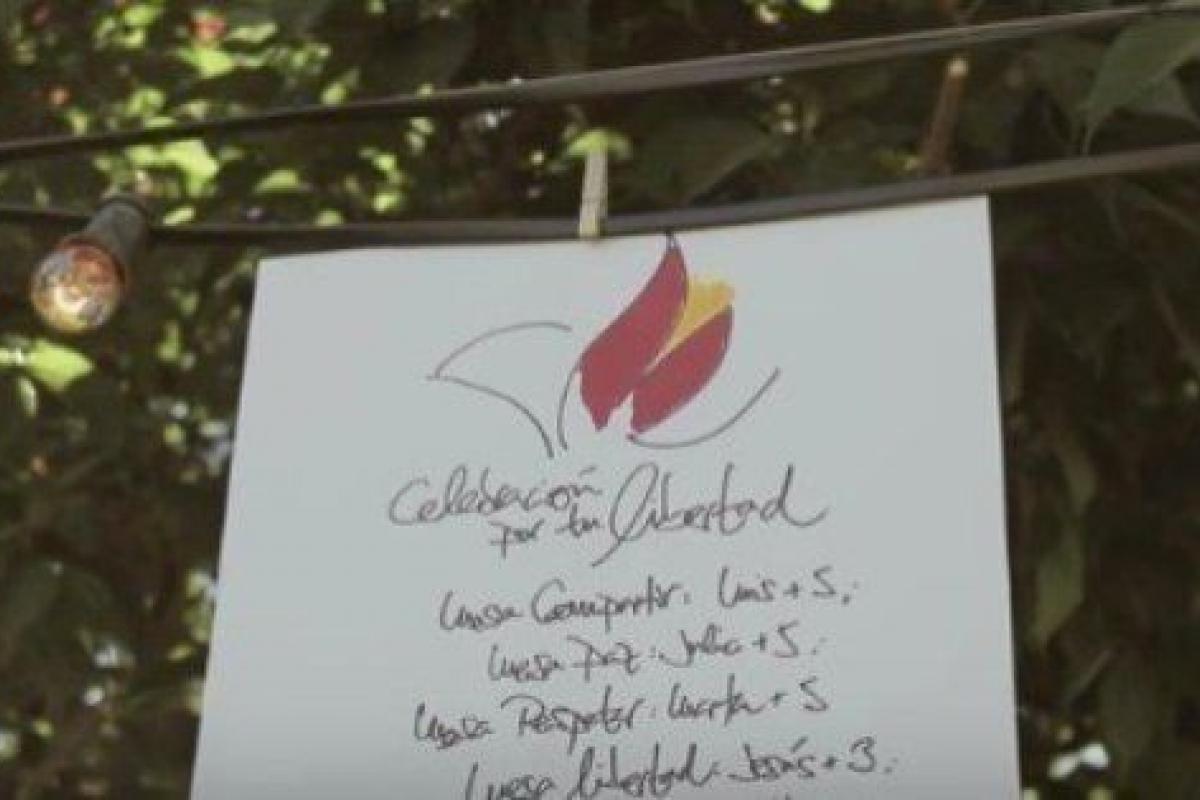 Celebración
por tu libertad
Mesa Compartir: Luis + 5.
Mesa Paz: Julio + 5.
Mesa Respetar: Marta + 5
Mesa libertad: Jesús + 3.